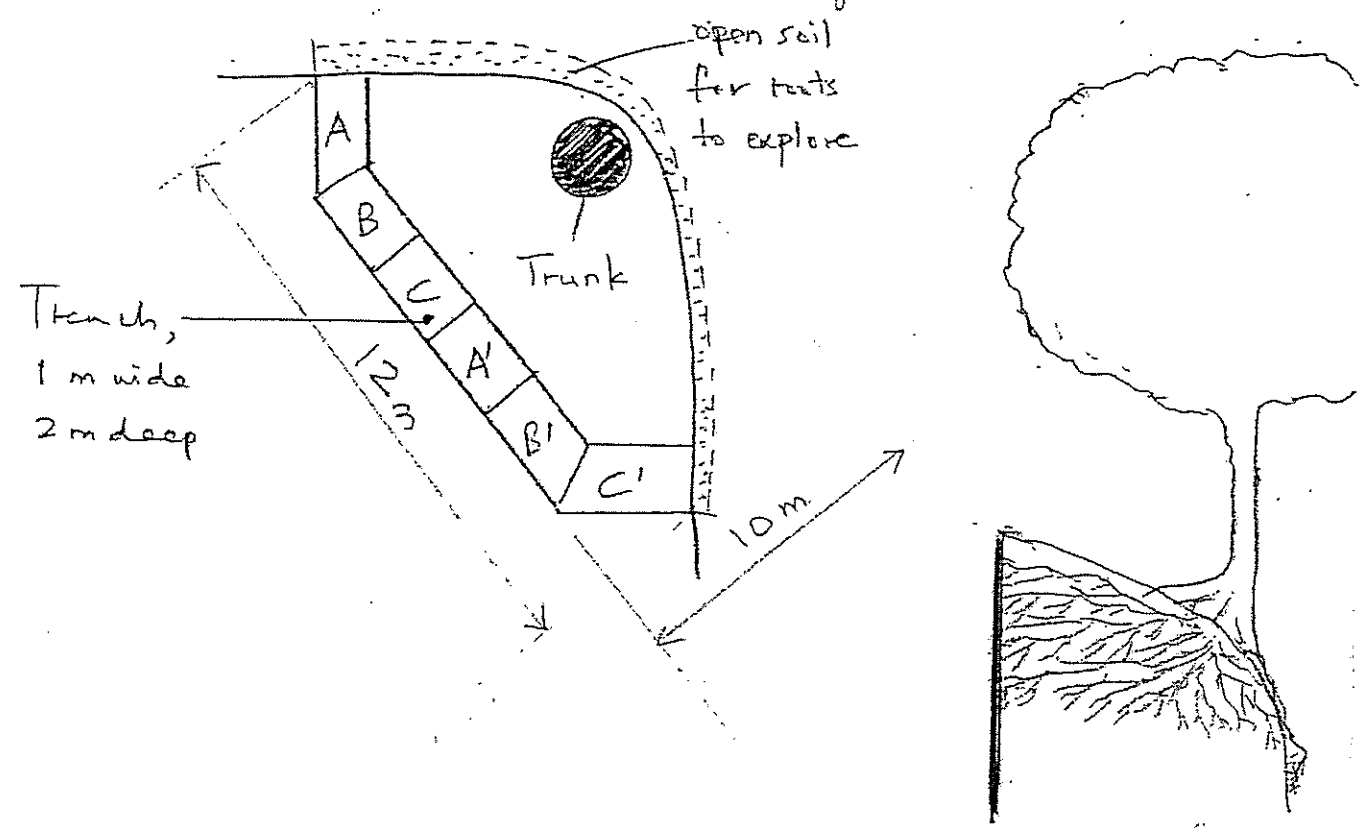 open soil
for roots
to explore
A
B
C
A'
B'
C'
Trunk
Trench,
1 m wide
2 m deep
12
3
10 m